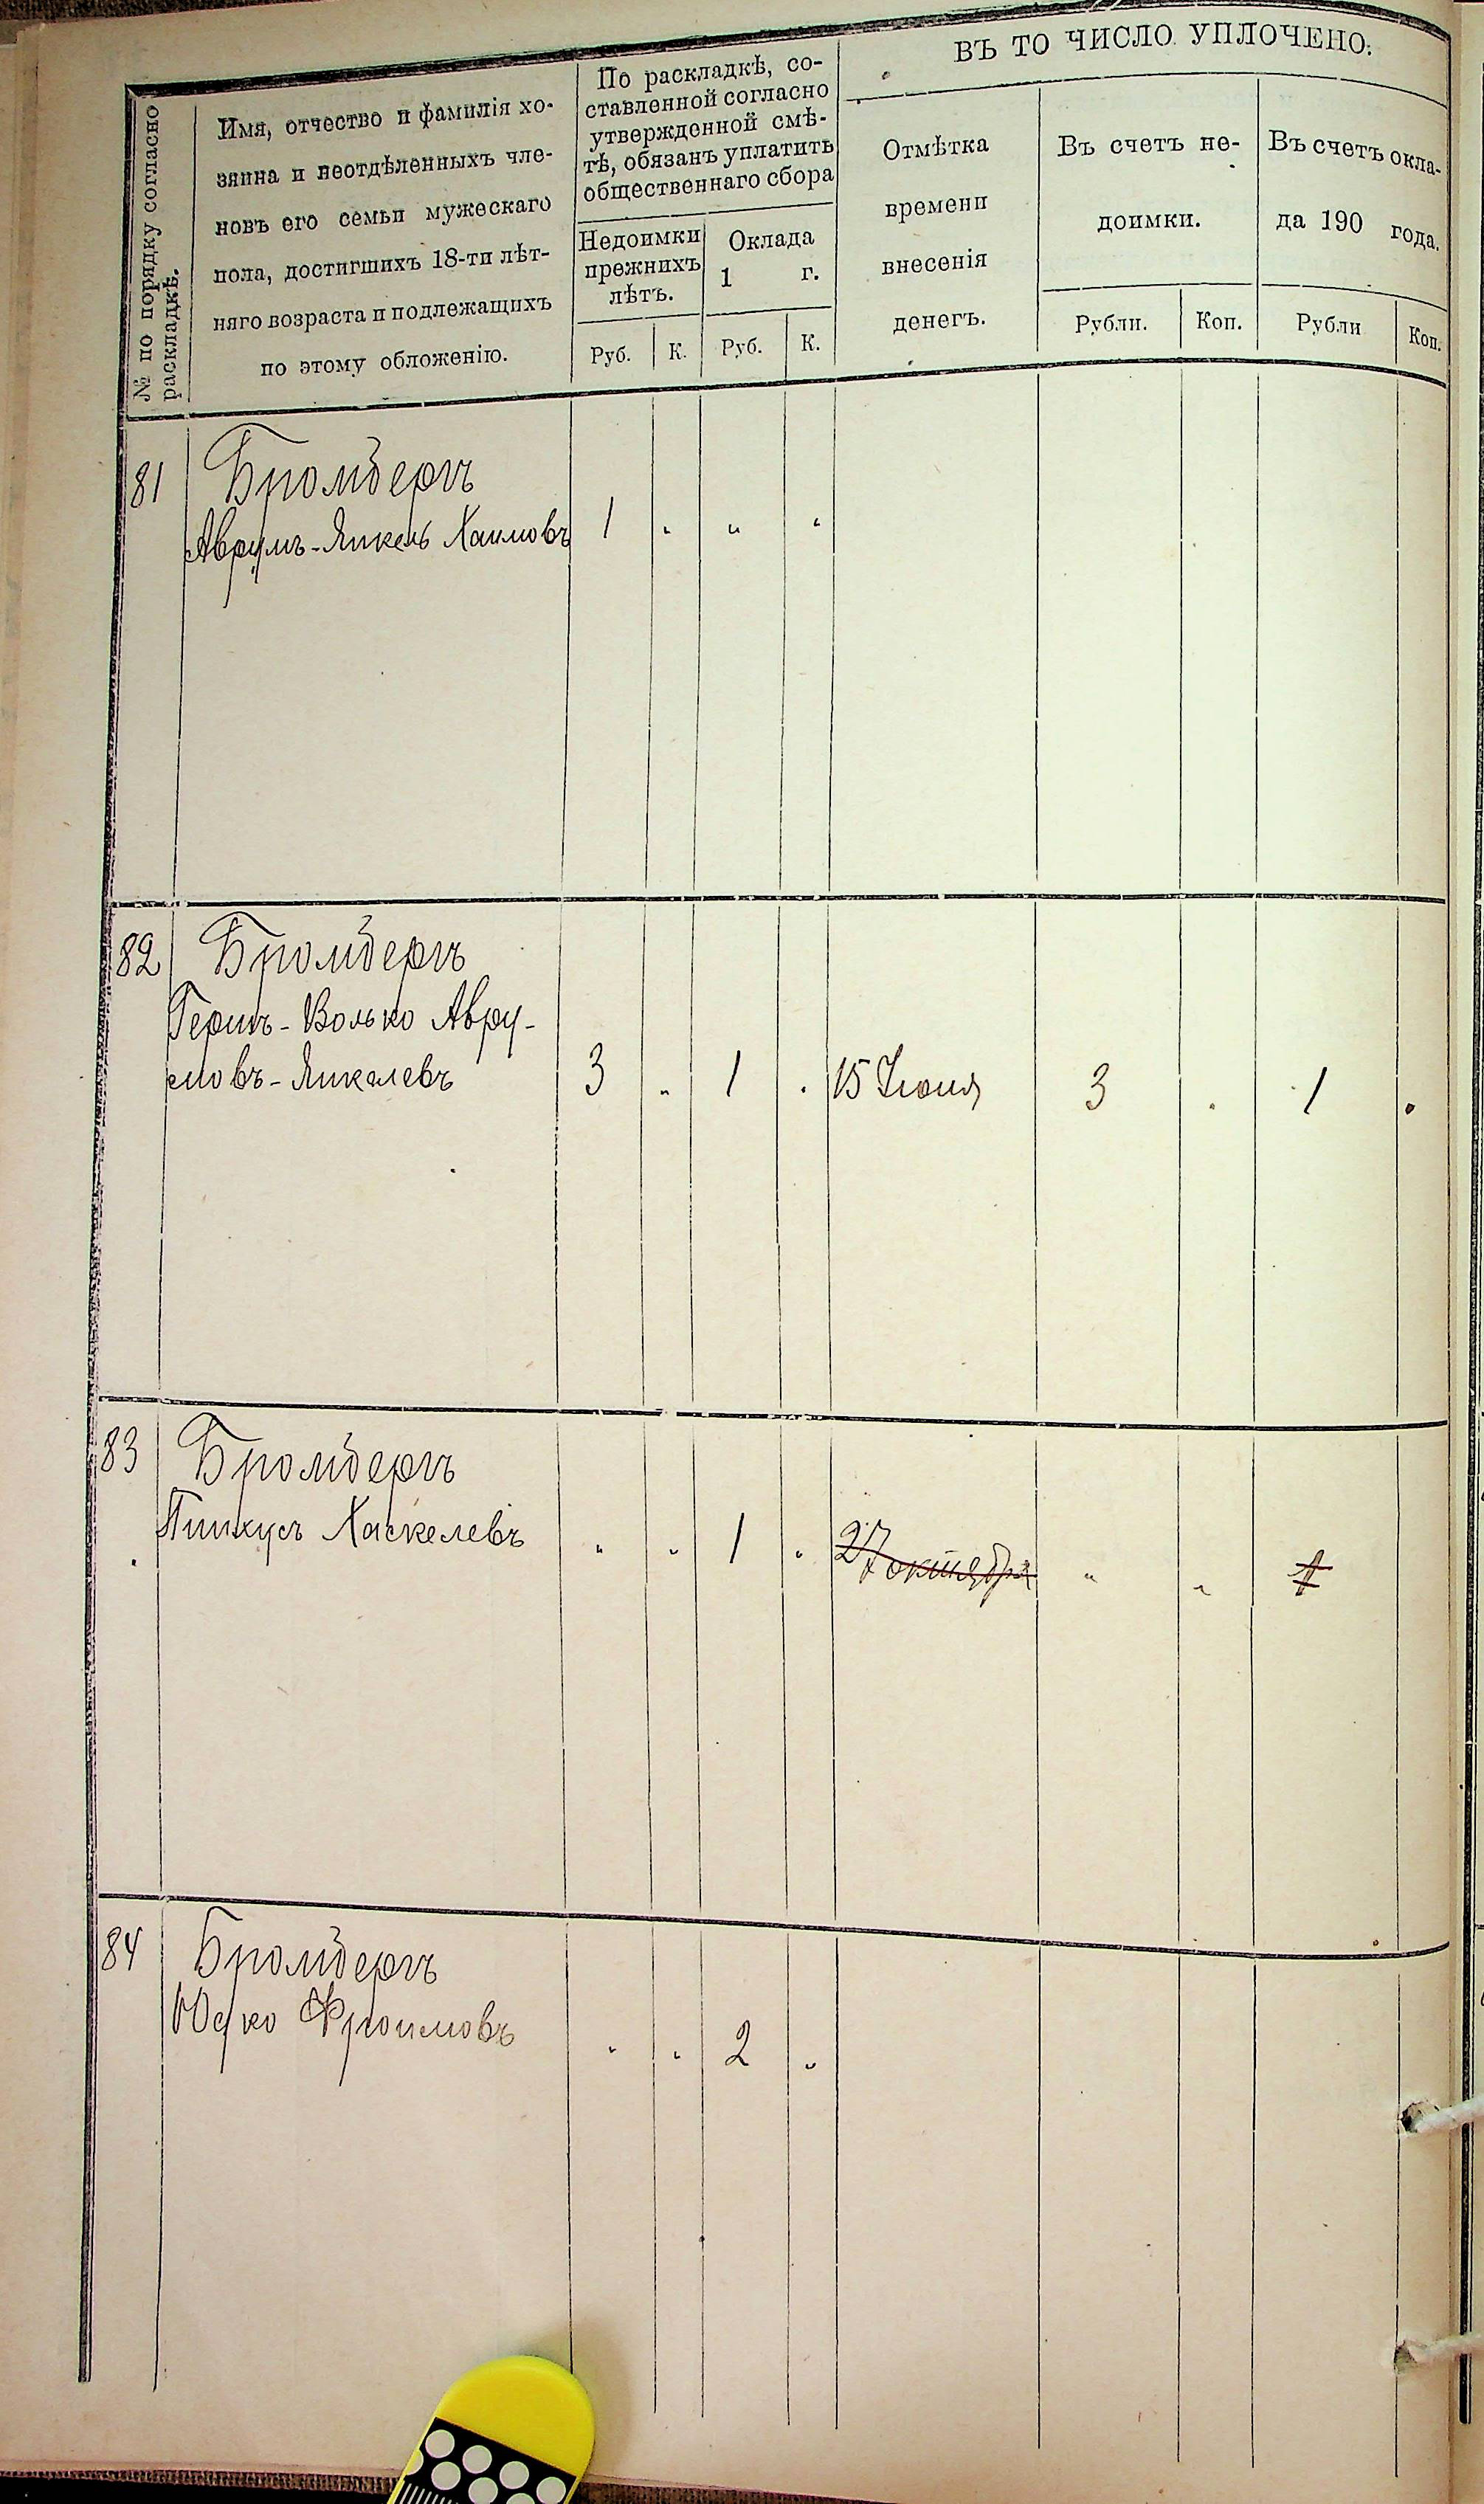 № по порядку согласно
раскладкѣ.
Имя, отчество и фамилія хо-
зяина и неотдѣленныхъ чле-
новъ его семьи мужескаго
пола, достигшихъ 18-ти лѣт-
няго возраста и подлежащихъ
по этому обложенію.
По раскладкѣ, со-
ставленной согласно
утвержденной смѣ-
тѣ, обязанъ уплатить
общественнаго сбора
Недоимки
прежнихъ
лѣтъ.
Оклада
1 г.
Руб. К. Руб. К.
ВЪ ТО ЧИСЛО УПЛОЧЕНО:
Отмѣтка
времени
внесенія
денегъ.
Въ счетъ не-
доимки.
Рубли. Коп.
Въ счетъ окла-
да 190 года.
Рубли Коп.
81 Бромбергъ
Аврумъ-Янкель Хаимовъ 1 " " "
82 Бромбергъ
Гершъ-Волько Авру-
мовъ-Янкелевъ 3 " 1 " 15 Іюня 3 " 1 "
83 Бромбергъ
Пинкусъ Хаскелевъ " " 1 " 27 октября " " 1
84 Бромбергъ
Юсько Фроимовъ " " 2 "